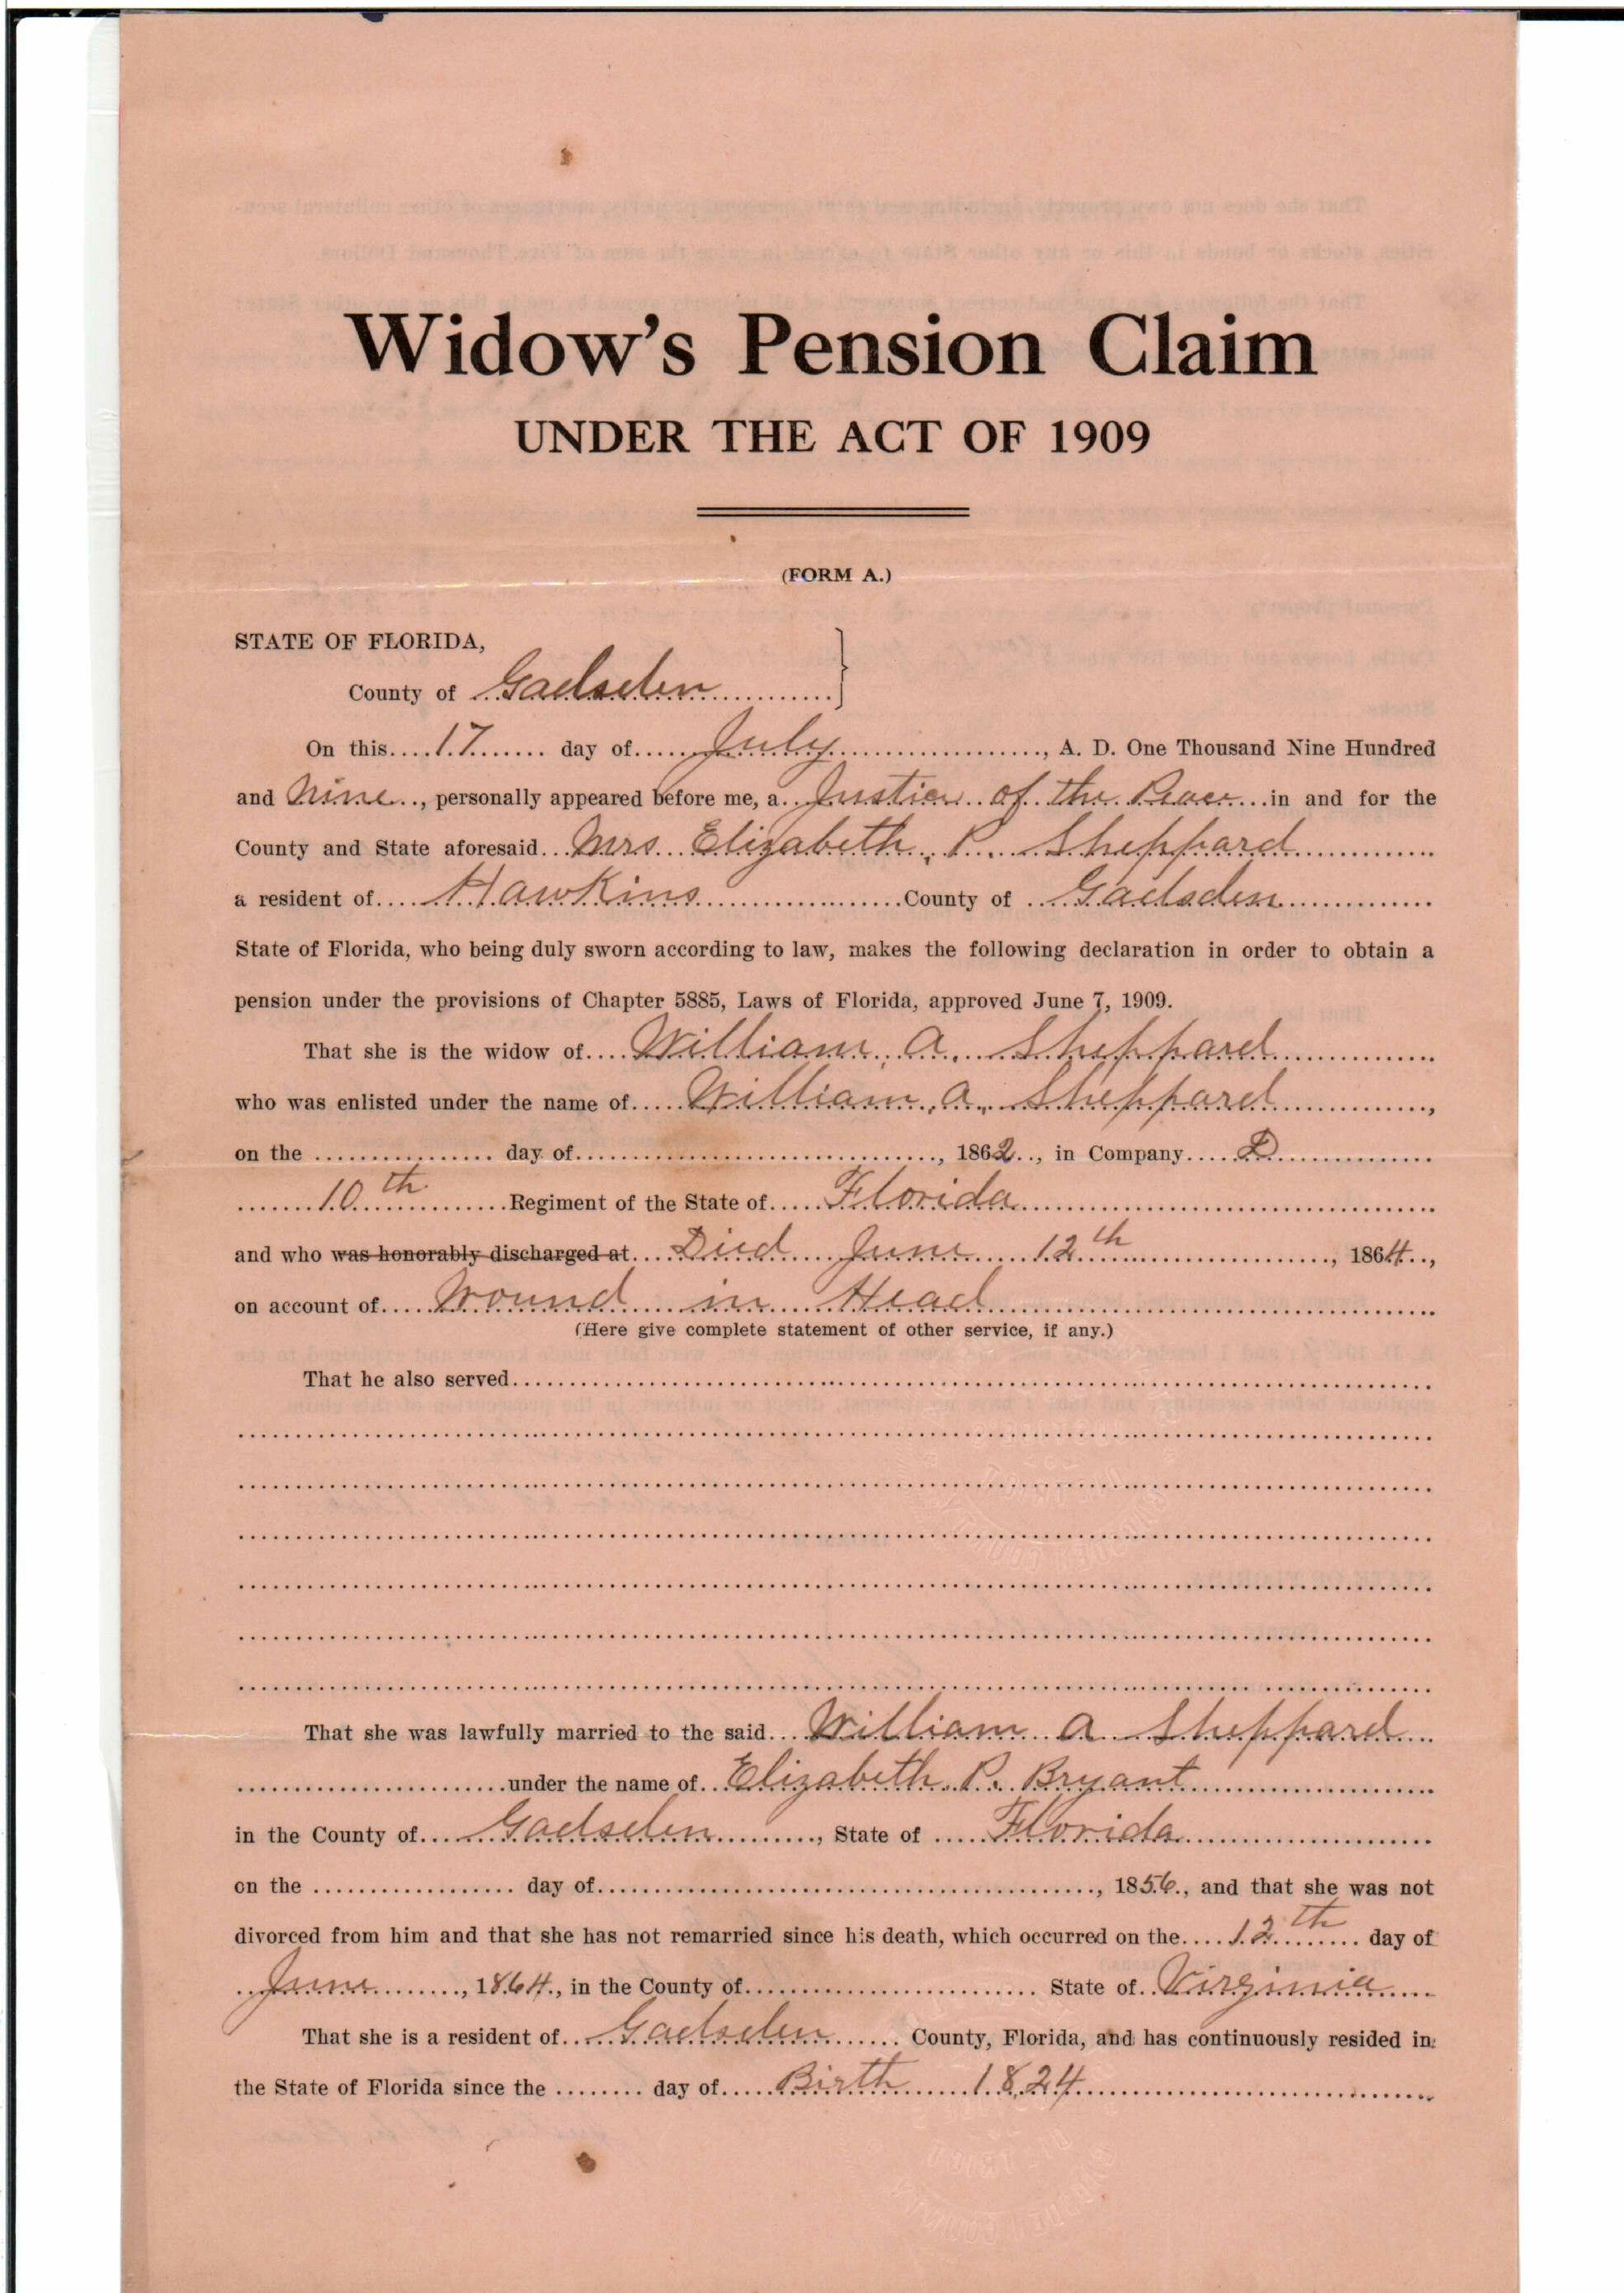 Widow's Pension Claim
UNDER THE ACT OF 1909
(FORM A.)
STATE OF FLORIDA,
County of Gadsden
On this 17 day of July, A. D. One Thousand Nine Hundred
and Nine, personally appeared before me, a Justice of the Peace in and for the
County and State aforesaid Mrs Elizabeth P. Sheppard
a resident of Hawkins County of Gadsden
State of Florida, who being duly sworn according to law, makes the following declaration in order to obtain a
pension under the provisions of Chapter 5885, Laws of Florida, approved June 7, 1909.
That she is the widow of William A. Sheppard
who was enlisted under the name of William A. Sheppard,
on the day of , 1862, in Company D
10th Regiment of the State of Florida
and who was honorably discharged at Died June 12th, 1864,
on account of Wound in Head
(Here give complete statement of other service, if any.)
That he also served
That she was lawfully married to the said William A Sheppard
under the name of Elizabeth P. Bryant
in the County of Gadsden, State of Florida
on the day of , 1856, and that she was not
divorced from him and that she has not remarried since his death, which occurred on the 12th day of
June, 1864, in the County of State of Virginia
That she is a resident of Gadsden County, Florida, and has continuously resided in
the State of Florida since the day of Birth 1824